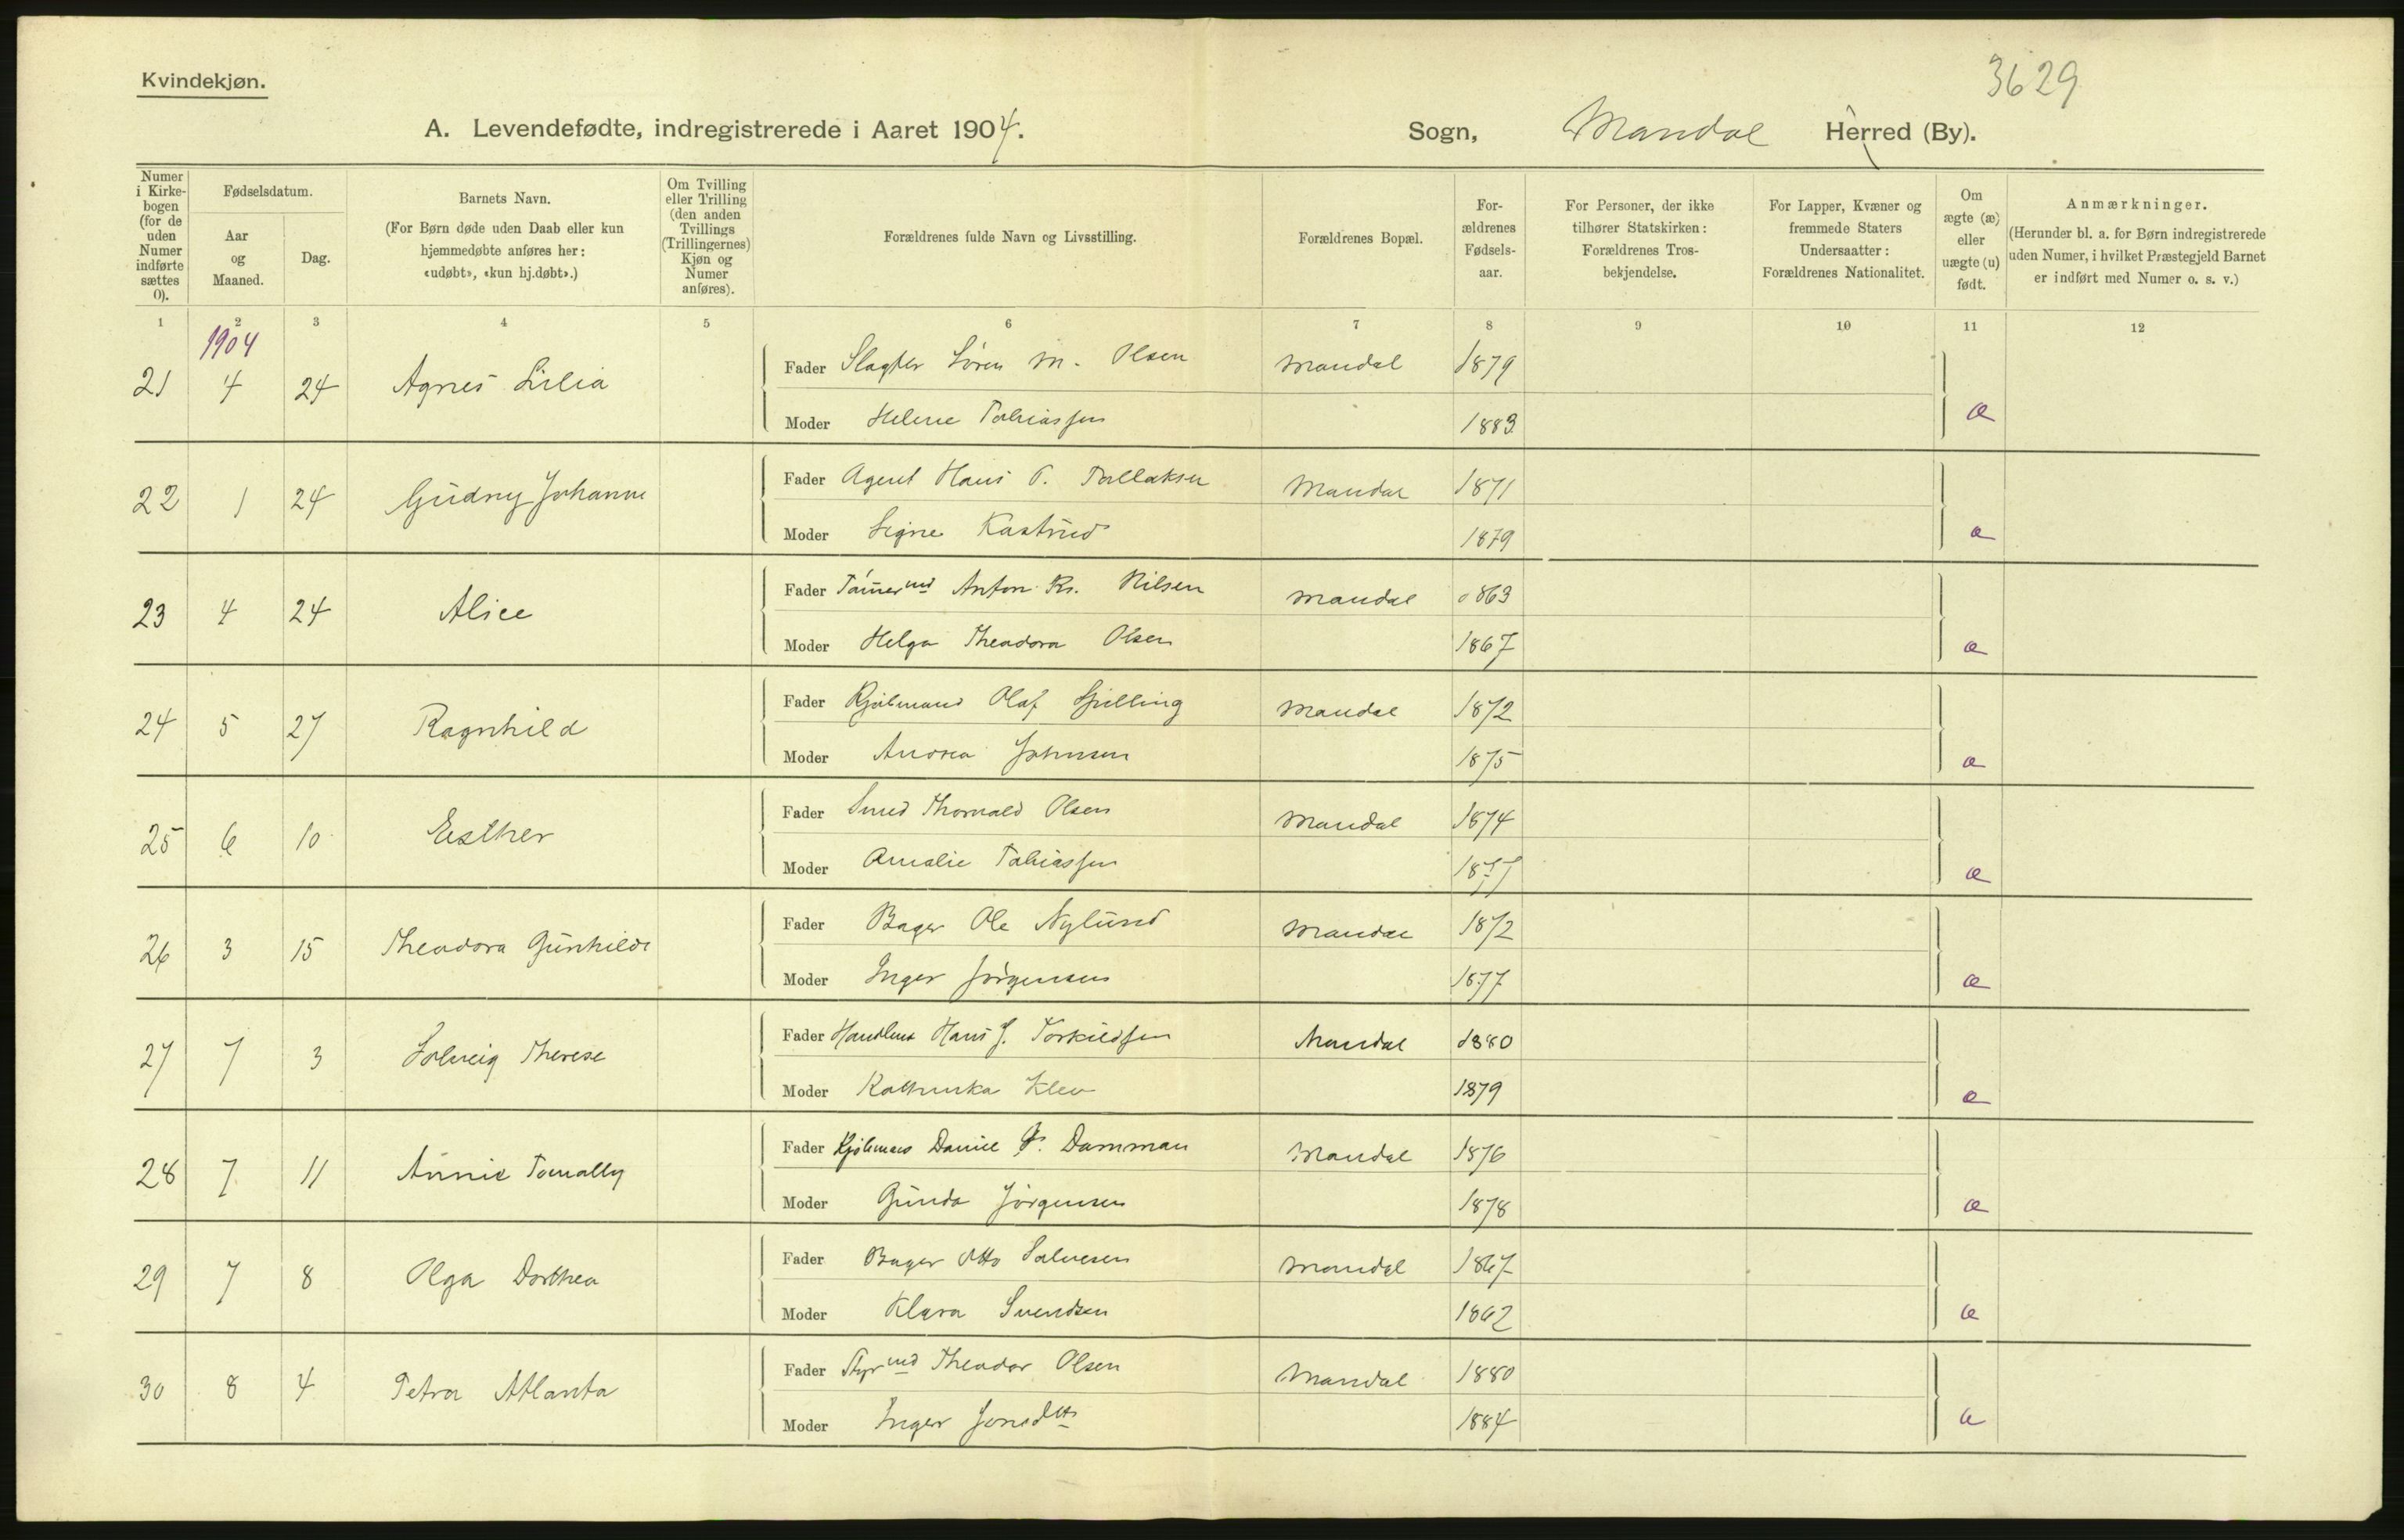 3629
Kvindekjøn.
A. Levendefødte, indregistrerede i Aaret 1904. Sogn, Mandal Herred (By).
Numer i Kirkebogen (for de uden Numer indførte sættes 0).
Fødselsdatum.
Aar og Maaned.
Dag.
Barnets Navn.
(For Børn døde uden Daab eller kun hjemmedøbte anføres her: «udøbt», «kun hj.døbt».)
Om Tvilling eller Trilling (den anden Tvillings (Trillingernes) Kjøn og Numer anføres).
Forældrenes fulde Navn og Livsstilling.
Forældrenes Bopæl.
Forældrenes Fødselsaar.
For Personer, der ikke tilhører Statskirken: Forældrenes Trosbekjendelse.
For Lapper, Kvæner og fremmede Staters Undersaatter: Forældrenes Nationalitet.
Om ægte (æ) eller uægte (u) født.
Anmærkninger.
(Herunder bl. a. for Børn indregistrerede uden Numer, i hvilket Præstegjeld Barnet er indført med Numer o. s. v.)
1 2 3 4 5 6 7 8 9 10 11 12
1904
21 4 24 Agnes Lilia Fader Slagter Søren M. Olsen Mandal 1879
Moder Helene Tobiassen 1883 æ
22 1 24 Gudny Johanne Fader Agent Hans T. Tallaksen Mandal 1871
Moder Signe Kastrud 1879 æ
23 4 24 Alice Fader Tømermd Anton Kr. Nilsen Mandal 1863
Moder Helga Theodora Olsen 1867 æ
24 5 27 Ragnhild Fader Kjøbmand Olaf Spilling Mandal 1872
Moder Andrea Johnsen 1875 æ
25 6 10 Esther Fader Smed Thorvald Olsen Mandal 1874
Moder Amalie Tobiassen 1877 æ
26 3 15 Theodora Gunhilde Fader Bager Ole Nylund Mandal 1872
Moder Inger Jørgensen 1877 æ
27 7 3 Solveig Therese Fader Handlende Hans J. Torkildsen Mandal 1880
Moder Kathinka Klev 1879 æ
28 7 11 Annie Fader Kjøbmand Daniel Damman Mandal 1876
Moder Gunda Jørgensen 1878 æ
29 7 8 Olga Dorthea Fader Bager Otto Salvesen Mandal 1867
Moder Klara Svendsen 1862 æ
30 8 4 Petra Atlanta Fader Styrmd Theodor Olsen Mandal 1880
Moder Inger Jonsdtt 1884 æ